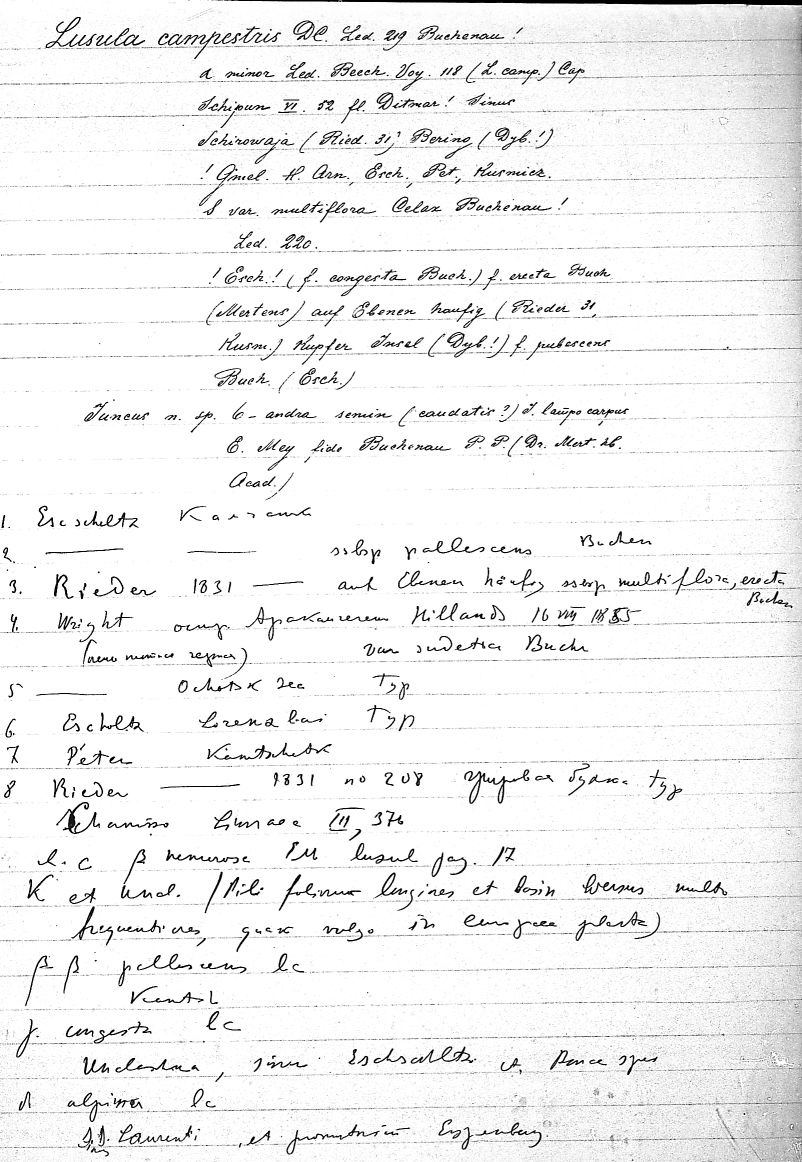 Lusula campestris DC. Led. 219 Buchenau!
α minor Led. Beech. Voy. 118 (L. camp.) Cap
Schipun VI. 52 fl. Ditmar! Sinus
Schirowaja (Ried. 31; Bering (Dyb.!)
! Gmel. H. Arn., Esch., Pet., Kusmicz.
δ var. multiflora Celax Buchenau!
Led. 220.
! Esch.! (f. congesta Buch.) f. erecta Buch
(Mertens) auf Ebenen haufig (Rieder 31,
Kusm.) Kupfer Insel (Dyb.!) f. pubescens
Buch. (Esch.)
Juncus n. sp. 6-andra semin (caudatis?) J. lampocarpus
E. Mey fide Buchenau P. P. (Dr. Mert. hb.
Acad.)
1. Escscholtz
2. — — ssbsp pallescens Buchen
3. Rieder 1831 — auf Ebenen häufig ssbsp multiflora, erecta
Buchen
4. Wright Hillands 16 VIII 1855
var sudetica Buche
5 — Ochotsk sea Typ
6. Escholtz Lorenz bai Typ
7 Peter Kamtschatk
8 Rieder — 1831 no 208 typ
Chamisso Linnaea III, 376
l. c β nemorosa EM lusul pag. 17
K et Unal. (Pili foliorum longiores et basin versus multo
frequentiores, quam vulgo in europaea planta)
β β pallescens lc
Kamtsh
γ. congesta lc
Unalaschka, sinu Eschscholtz et Bonae spei
δ alpina lc
Laurenti, et promontorium